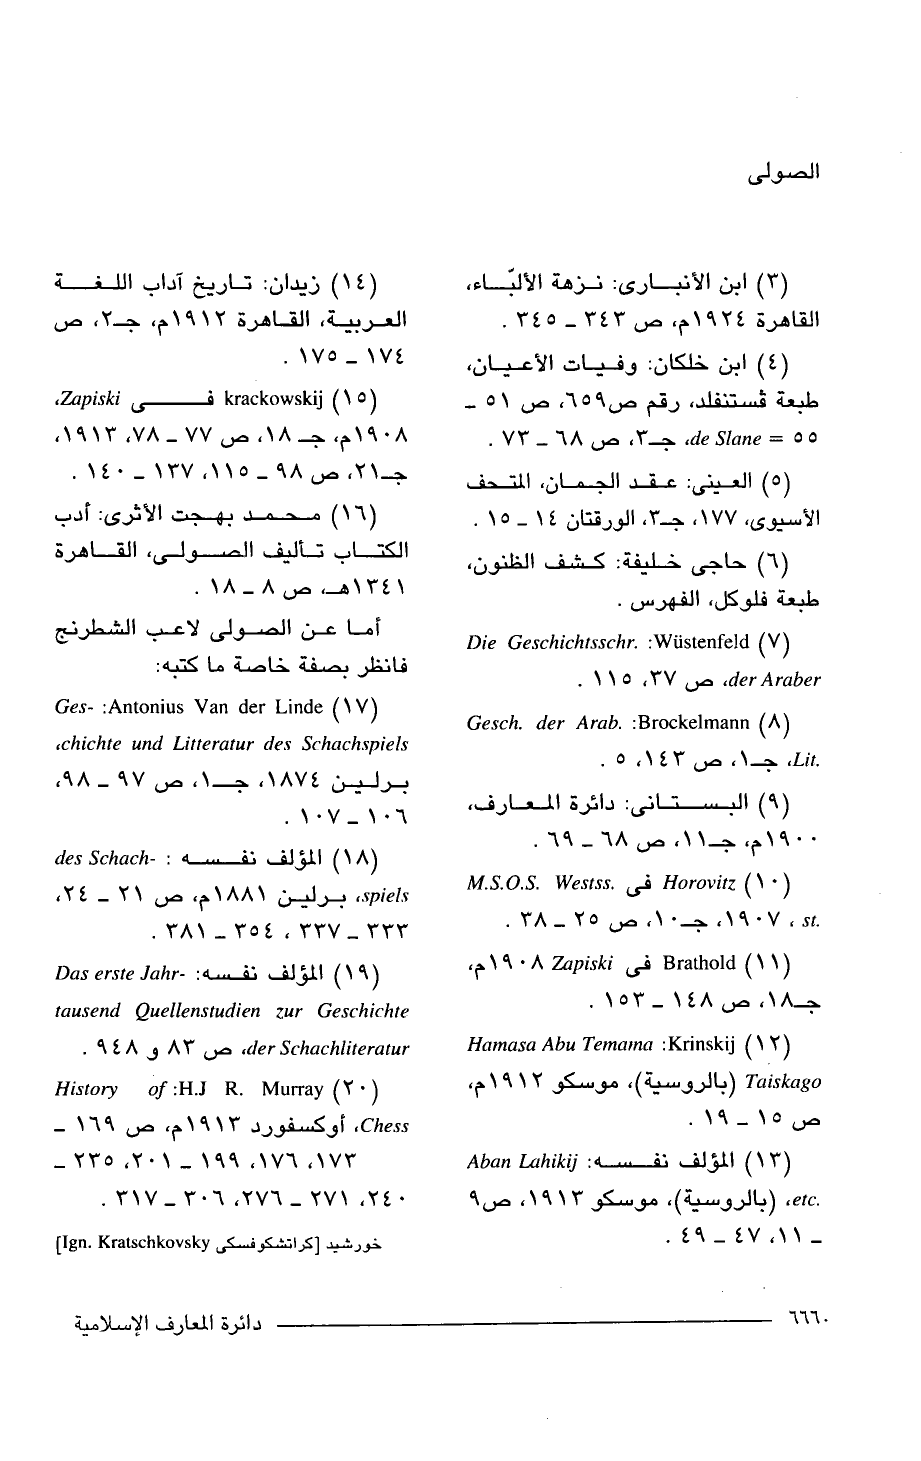 الصولى
(٣) ابن الأنبارى: نزهة الألبّاء،
القاهرة ١٩٢٤م، ص ٣٤٣ ـ ٣٤٥ .
(٤) ابن خلكان: وفيات الأعيان،
طبعة ڤستنفلد، رقم ص٦٥٩، ص ٥١ ـ
٥٥ = de Slane، جـ٣، ص ٦٨ ـ ٧٣ .
(٥) العينى: عقد الجمان، المتحف
الأسيوى، ١٧٧، جـ٣، الورقتان ١٤ ـ ١٥ .
(٦) حاجى خليفة: كشف الظنون،
طبعة فلوكل، الفهرس .
(٧) Wüstenfeld: Die Geschichtsschr.
der Araber، ص ٣٧، ١١٥ .
(٨) Brockelmann: Gesch. der Arab.
Lit.، جـ١، ص ١٤٣، ٥ .
(٩) البستانى: دائرة المعارف،
١٩٠٠م، جـ١١، ص ٦٨ ـ ٦٩ .
(١٠) Horovitz فى M.S.O.S. Westss.
st. ، ١٩٠٧، جـ١٠، ص ٢٥ ـ ٣٨ .
(١١) Brathold فى Zapiski ١٩٠٨م،
جـ١٨، ص ١٤٨ ـ ١٥٣ .
(١٢) Krinskij: Hamasa Abu Temama
Taiskago (بالروسية)، موسكو ١٩١٢م،
ص ١٥ ـ ١٩ .
(١٣) المؤلف نفسه: Aban Lahikij
etc.، (بالروسية)، موسكو ١٩١٣، ص٩
ـ ١١، ٤٧ ـ ٤٩ .
(١٤) زيدان: تاريخ آداب اللغة
العربية، القاهرة ١٩١٢م، جـ٢، ص
١٧٤ ـ ١٧٥ .
(١٥) krackowskij فى Zapiski،
١٩٠٨م، جـ١٨، ص ٧٧ ـ ٧٨، ١٩١٣،
جـ٢١، ص ٩٨ ـ ١١٥، ١٣٧ ـ ١٤٠ .
(١٦) محمد بهجت الأثرى: أدب
الكتاب تأليف الصولى، القاهرة
١٣٤١هـ، ص ٨ ـ ١٨ .
أما عن الصولى لاعب الشطرنج
فانظر بصفة خاصة ما كتبه:
(١٧) Antonius Van der Linde: Ges-
chichte und Litteratur des Schachspiels،
برلين ١٨٧٤، جـ١، ص ٩٧ ـ ٩٨،
١٠٦ ـ ١٠٧ .
(١٨) المؤلف نفسه : des Schach-
spiels، برلين ١٨٨١م، ص ٢١ ـ ٢٤،
٣٣٣ ـ ٣٣٧ ، ٣٥٤ ـ ٣٨١ .
(١٩) المؤلف نفسه: Das erste Jahr-
tausend Quellenstudien zur Geschichte
der Schachliteratur، ص ٨٣ و ٩٤٨ .
(٢٠) H.J R. Murray: History of
Chess، أوكسفورد ١٩١٣م، ص ١٦٩ ـ
١٧٣، ١٧٦، ١٩٩ ـ ٢٠١، ٢٣٥ ـ
٢٤٠، ٢٧١ ـ ٢٧٦، ٣٠٦ ـ ٣١٧ .
خورشيد [كراتشكوفسكى Ign. Kratschkovsky]
٦٦٦٠ دائرة المعارف الإسلامية